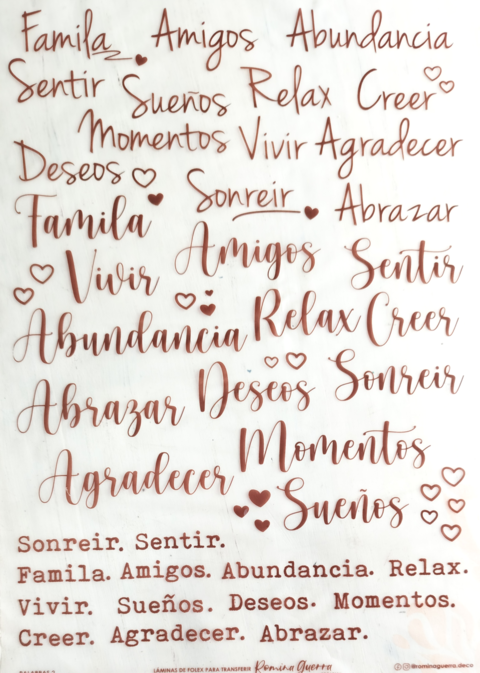 Famila Amigos Abundancia
Sentir Sueños Relax Creer
Momentos Vivir Agradecer
Deseos
Sonreir Abrazar
Famila
Amigos
Vivir Sentir
Abundancia Relax Creer
Deseos Sonreir
Abrazar
Momentos
Agradecer
Sueños
Sonreir. Sentir.
Famila. Amigos. Abundancia. Relax.
Vivir. Sueños. Deseos. Momentos.
Creer. Agradecer. Abrazar.
LÁMINAS DE FOLEX PARA TRANSFERIR Romina Guerra @rominaguerra.deco